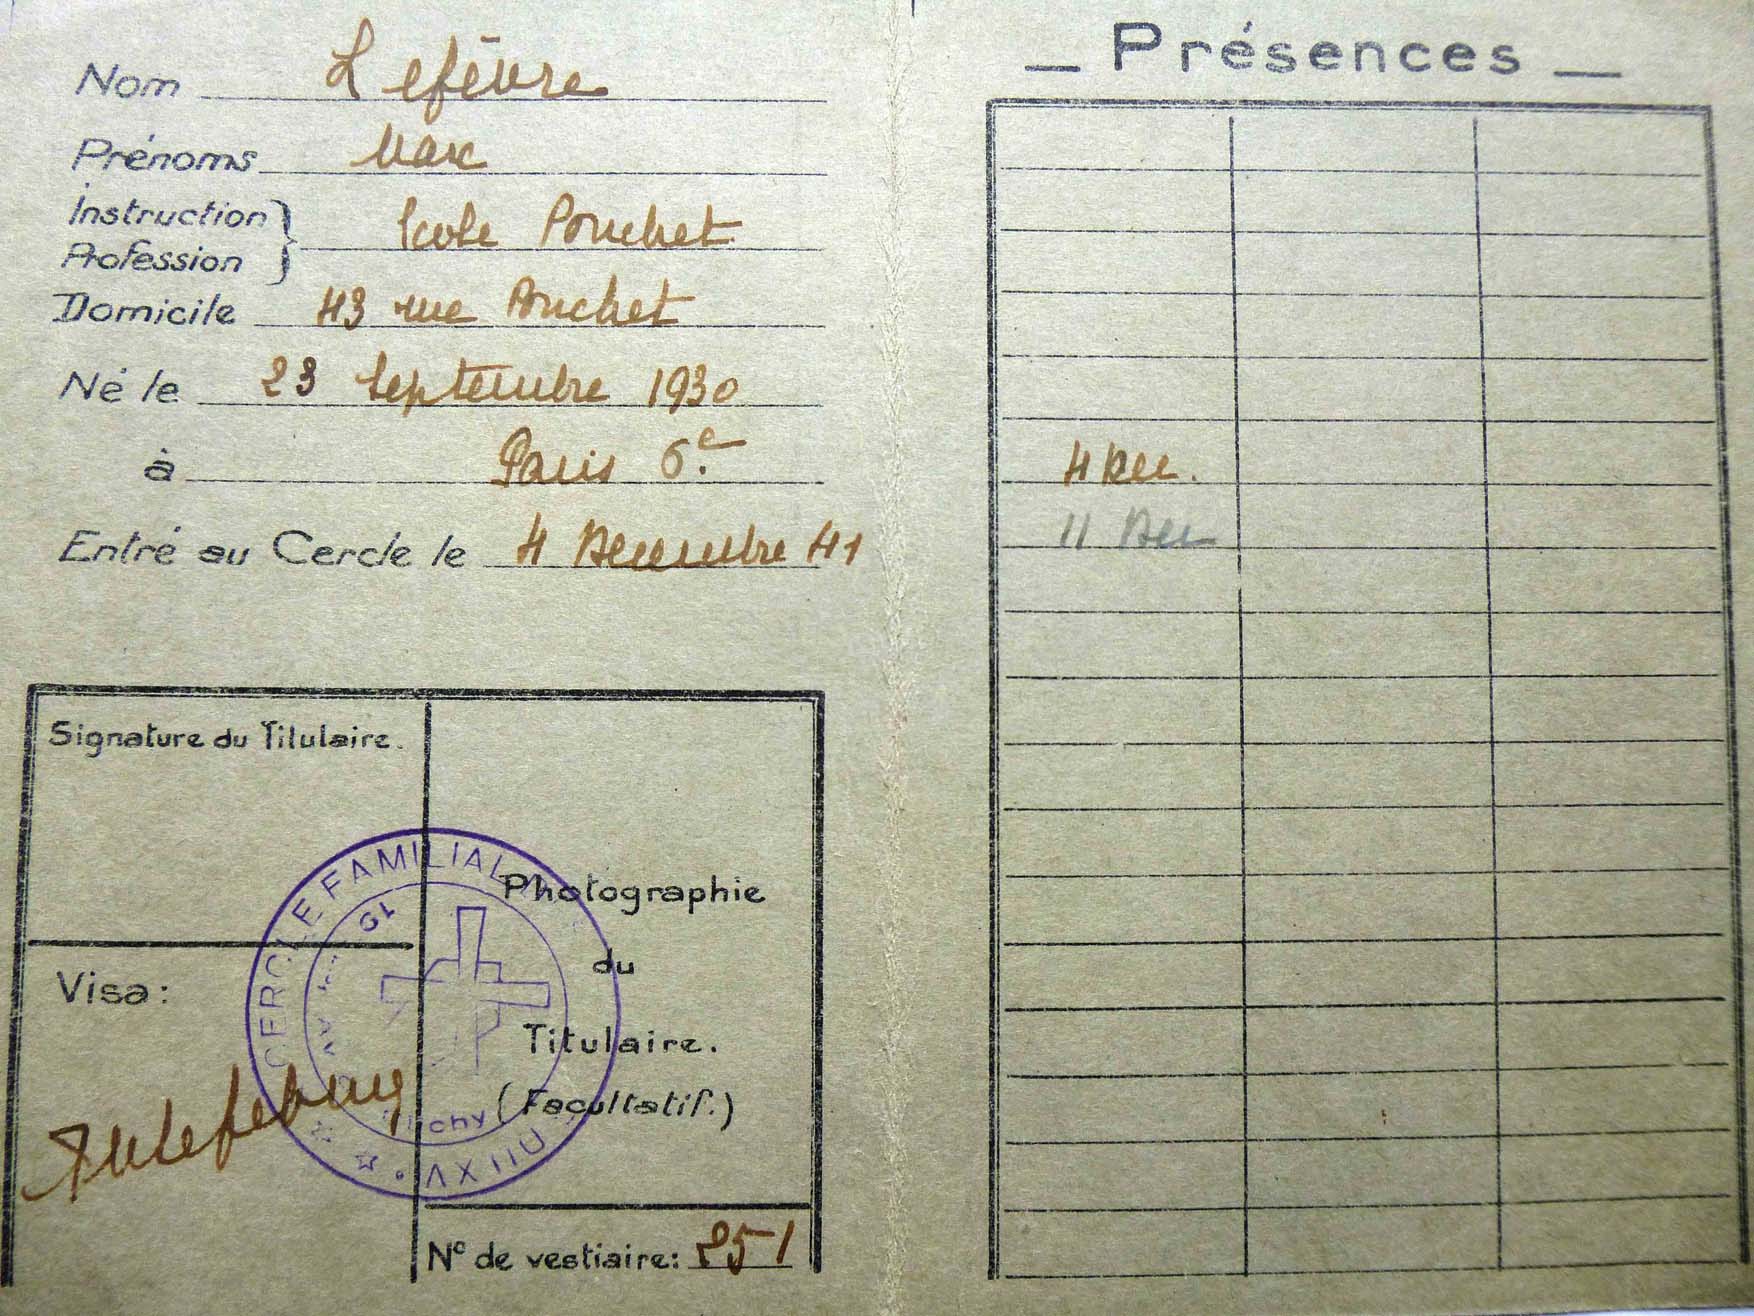 Nom Lefèvre
Prénoms Marc
Instruction
Profession
} Ecole Pouchet
Domicile 43 rue Pouchet
Né le 23 Septembre 1930
à Paris 6e.
Entré au Cercle le 4 Decembre 41
Signature du Titulaire.
Visa:
CERCLE FAMILIAL
19
AV
Clichy
XVII
Photographie
du
Titulaire.
(Facultatif.)
No de vestiaire: 251
_ Présences _
4 Dec.
11 Dec